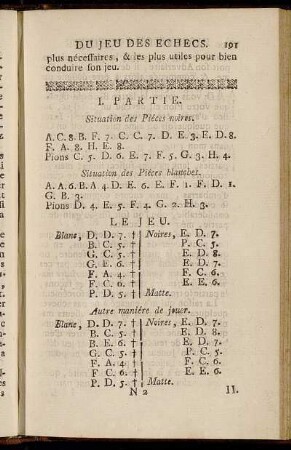 DU JEU DES ECHECS. 191
plus nécessaires, & les plus utiles pour bien
conduire son jeu.
I. PARTIE.
Situation des Piéces noires.
A. C. 8. B. F. 7. C. C. 7. D. E. 3. E. D. 8.
F. A. 8. H. E. 8.
Pions C. 5. D. 6. E. 7. F. 5. G. 3. H. 4.
Situation des Piéces blanches.
A. A. 6. B. A 4. D. E. 6. E. F. 1. F. D. 1.
G. B. 3.
Pions D. 4. E. 5. F. 4. G. 2. H. 3.
LE JEU.
Blanc, D. D. 7. † Noires, E. D. 7.
B. C. 5. † P. C. 5.
G. C. 5. † E. D. 8.
G. E. 6. † E. D. 7.
F. A. 4. † F. C. 6.
F. C. 6. † E. E. 6.
P. D. 5. † Matte.
Autre maniére de jouer.
Blanc, D. D. 7. † Noires, E. D. 7.
B. C. 5. † E. D. 8.
B. E. 6. † E. D. 7.
G. C. 5. † P. C. 5.
F. A. 4. † F. C. 6.
F. C. 6. † E. E. 6.
P. D. 5. † Matte.
N 2 II.